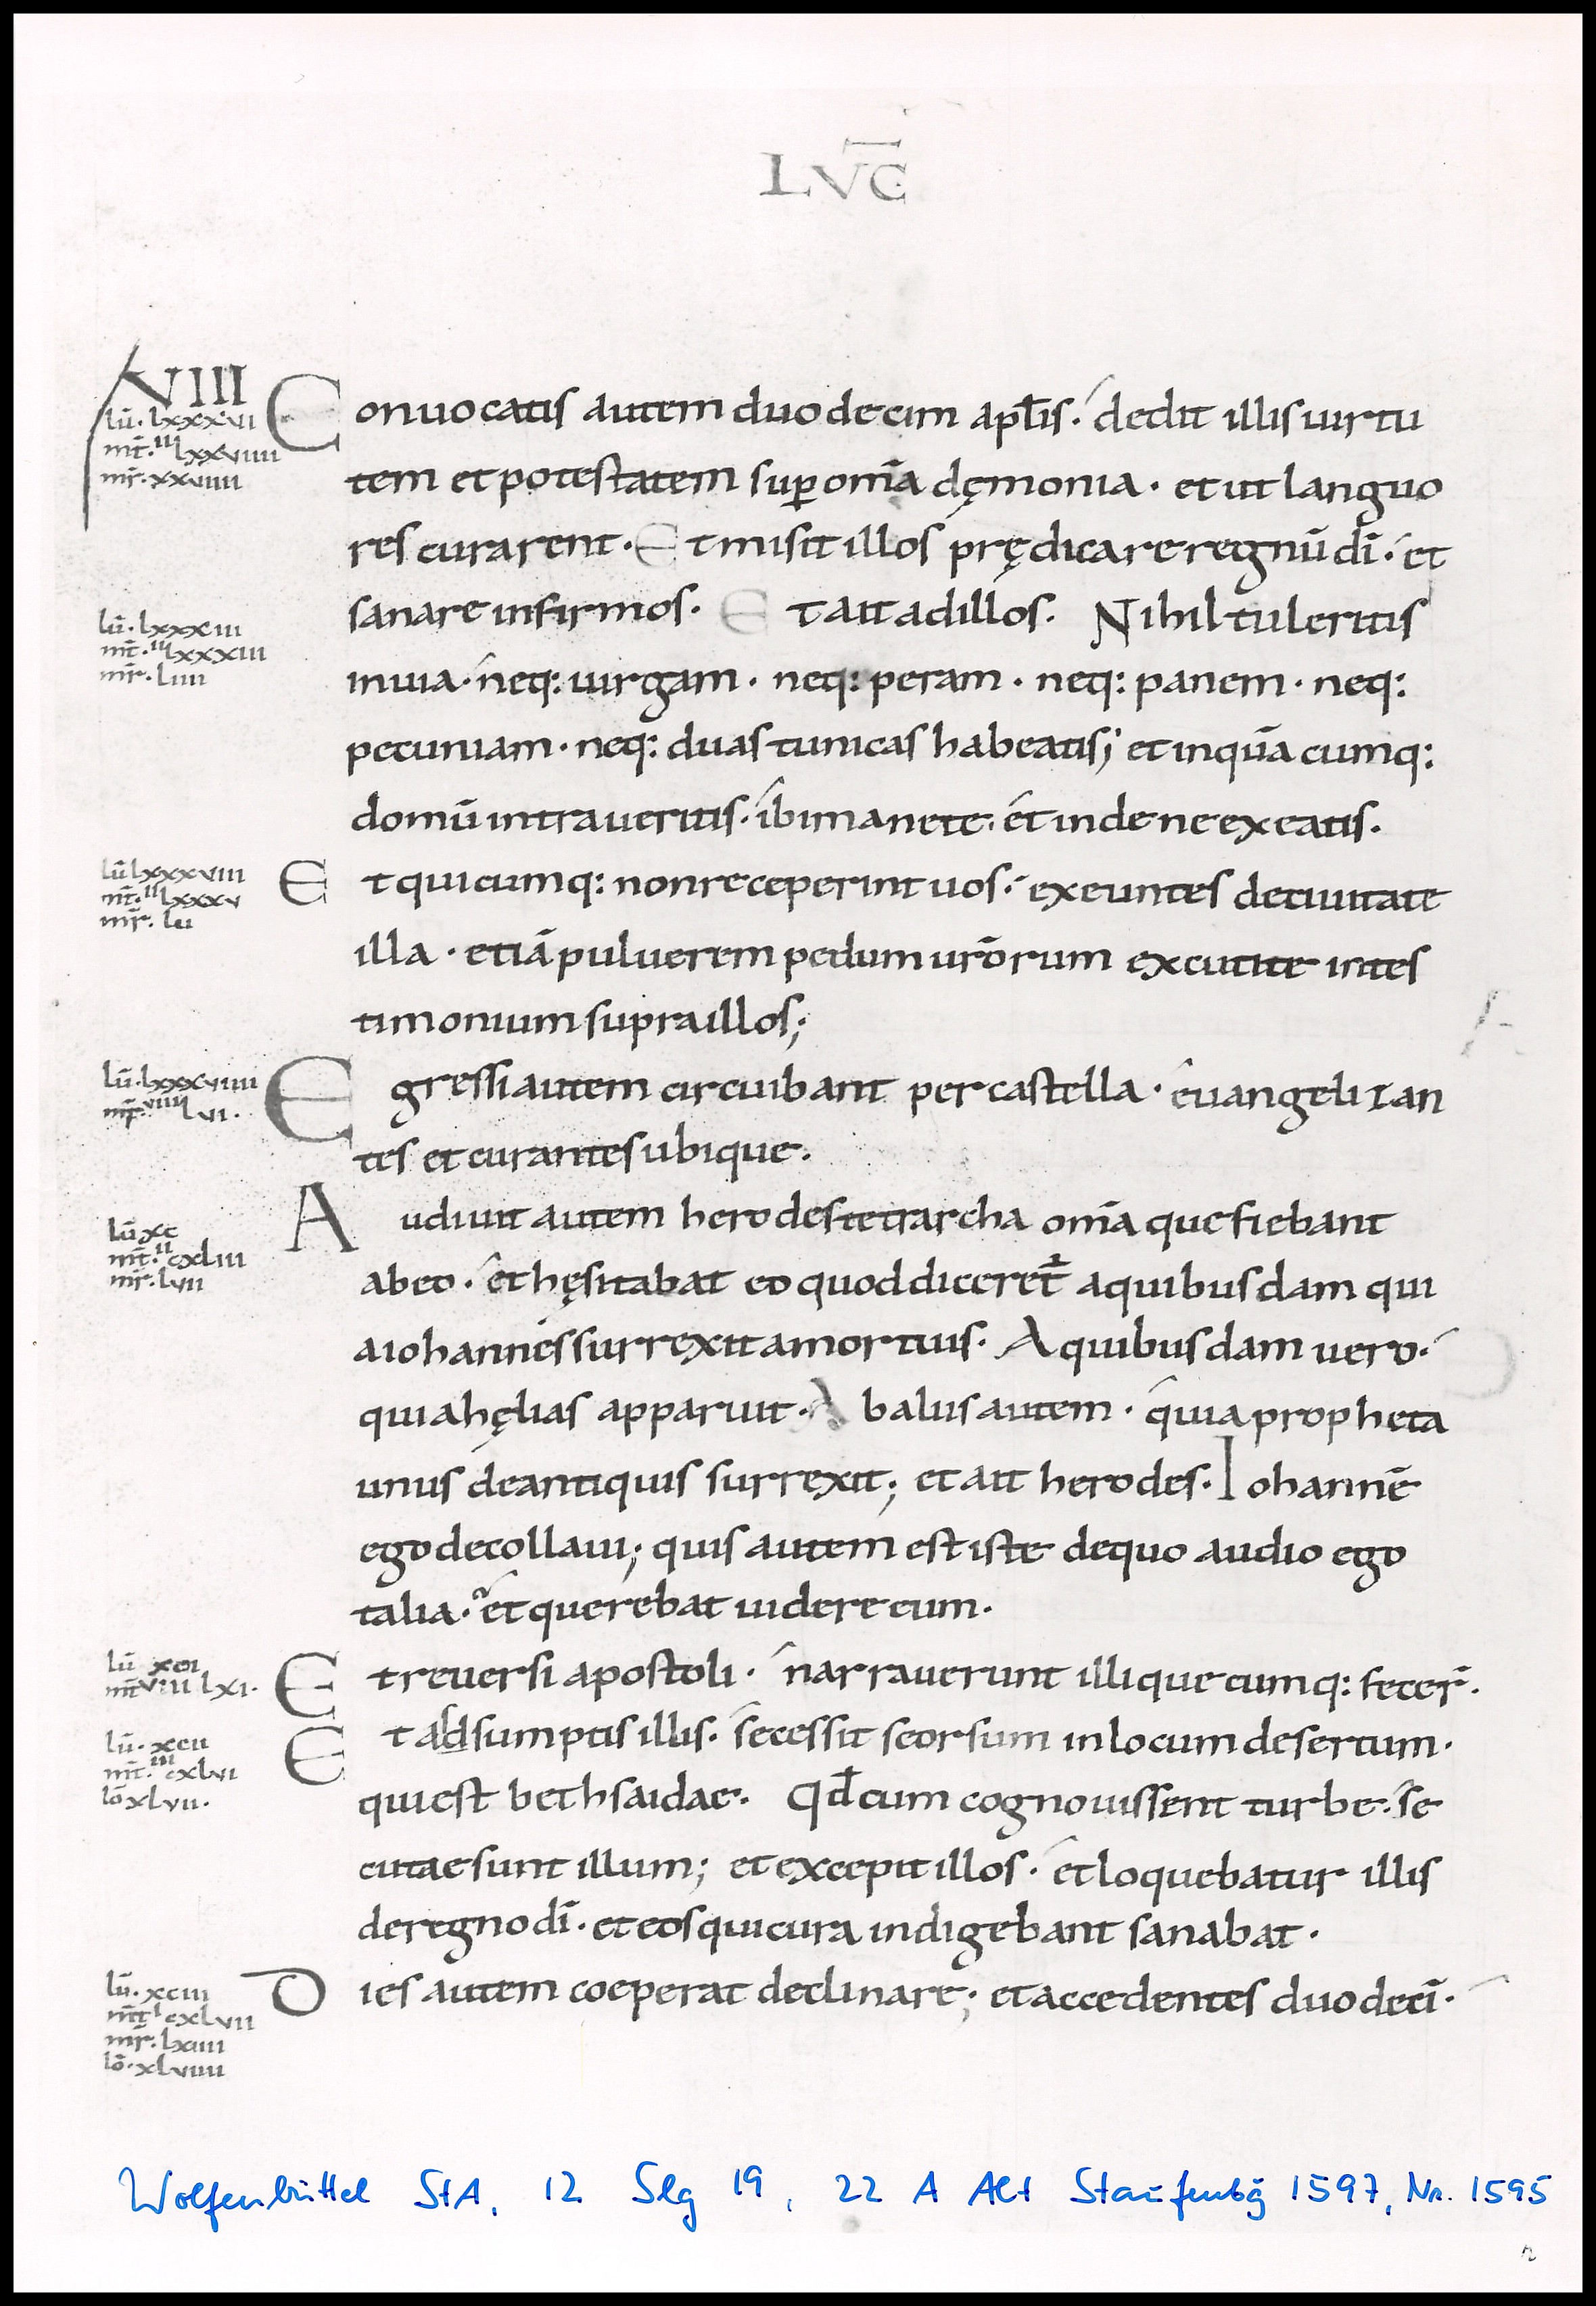 LVC̅
XVIII
lū. lxxxvii
mt̄. II lxxviiii
mr̄. xxviiii
Conuocatis autem duodecim apl̄is. dedit illis uirtu
tem et potestatem suꝑ om̄a dęmonia. et ut languo
res curarent. Et misit illos prędicare regnū dī. et
sanare infirmos. Et ait ad illos. Nihil tuleritis
lū. lxxxiii
mt̄. II lxxxiii
mr̄. liiii
in uia. neq: uirgam. neq: peram. neq: panem. neq:
pecuniam. neq: duas tunicas habeatis; et in quā cumq:
domū intraueritis. ibi manete. et inde ne exeatis.
lū lxxxviii
mt̄. II lxxxv
mr̄. lu
Et quicumq: non receperint uos. exeuntes de ciuitate
illa. etiā puluerem pedum ur̄orum excutite in tes
timonium supra illos;
lū. lxxxviiii
mr̄. viiii lvi.
Egressi autem circuibant per castella. euangelizan
tes et curantes ubique.
lū xc
mt̄. II cxliii
mr̄. lvii
Audiuit autem herodes tetrarcha om̄a que fiebant
ab eo. et hęsitabat eo quod diceret̄ a quibusdam qui
a iohannes surrexit a mortuis. A quibusdam uero.
quia hęlias apparuit. Ab aliis autem. quia propheta
unus de antiquis surrexit; et ait herodes. Iohannē
ego decollaui; quis autem est iste de quo audio ego
talia. et querebat uidere eum.
lū xci
mt̄ VIII lxi.
Et reuersi apostoli. narrauerunt illi que cumq: fecer̄.
lū. xcii
mt̄. III cxlvi
iō xlvii.
Et adsumptis illis. secessit seorsum in locum desertum.
qui est bethsaidae. Qd̄ cum cognouissent turbe. se
cutae sunt illum; et excepit illos. et loquebatur illis
de regno dī. et eos qui cura indigebant sanabat.
lū. xciii
mt̄ I cxlvii
mr̄. lxiii
iō. xlviiii
Dies autem coeperat declinare; et accedentes duodecī.
Wolfenbüttel StA, 12 Slg 19, 22 A Alt Staufenbg 1597, Nr. 1595